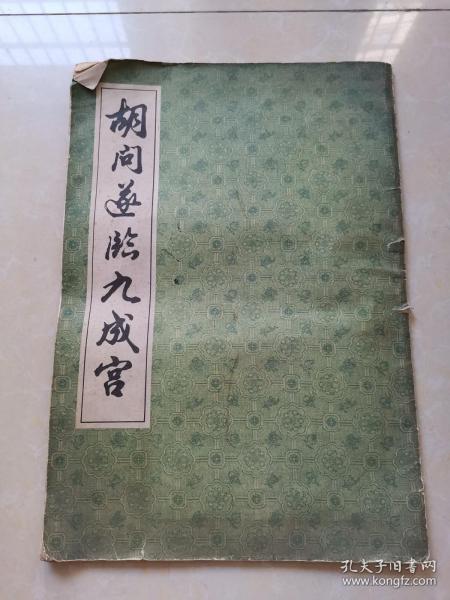 胡问遂临九成宫
孔夫子旧书网
www.kongfz.com